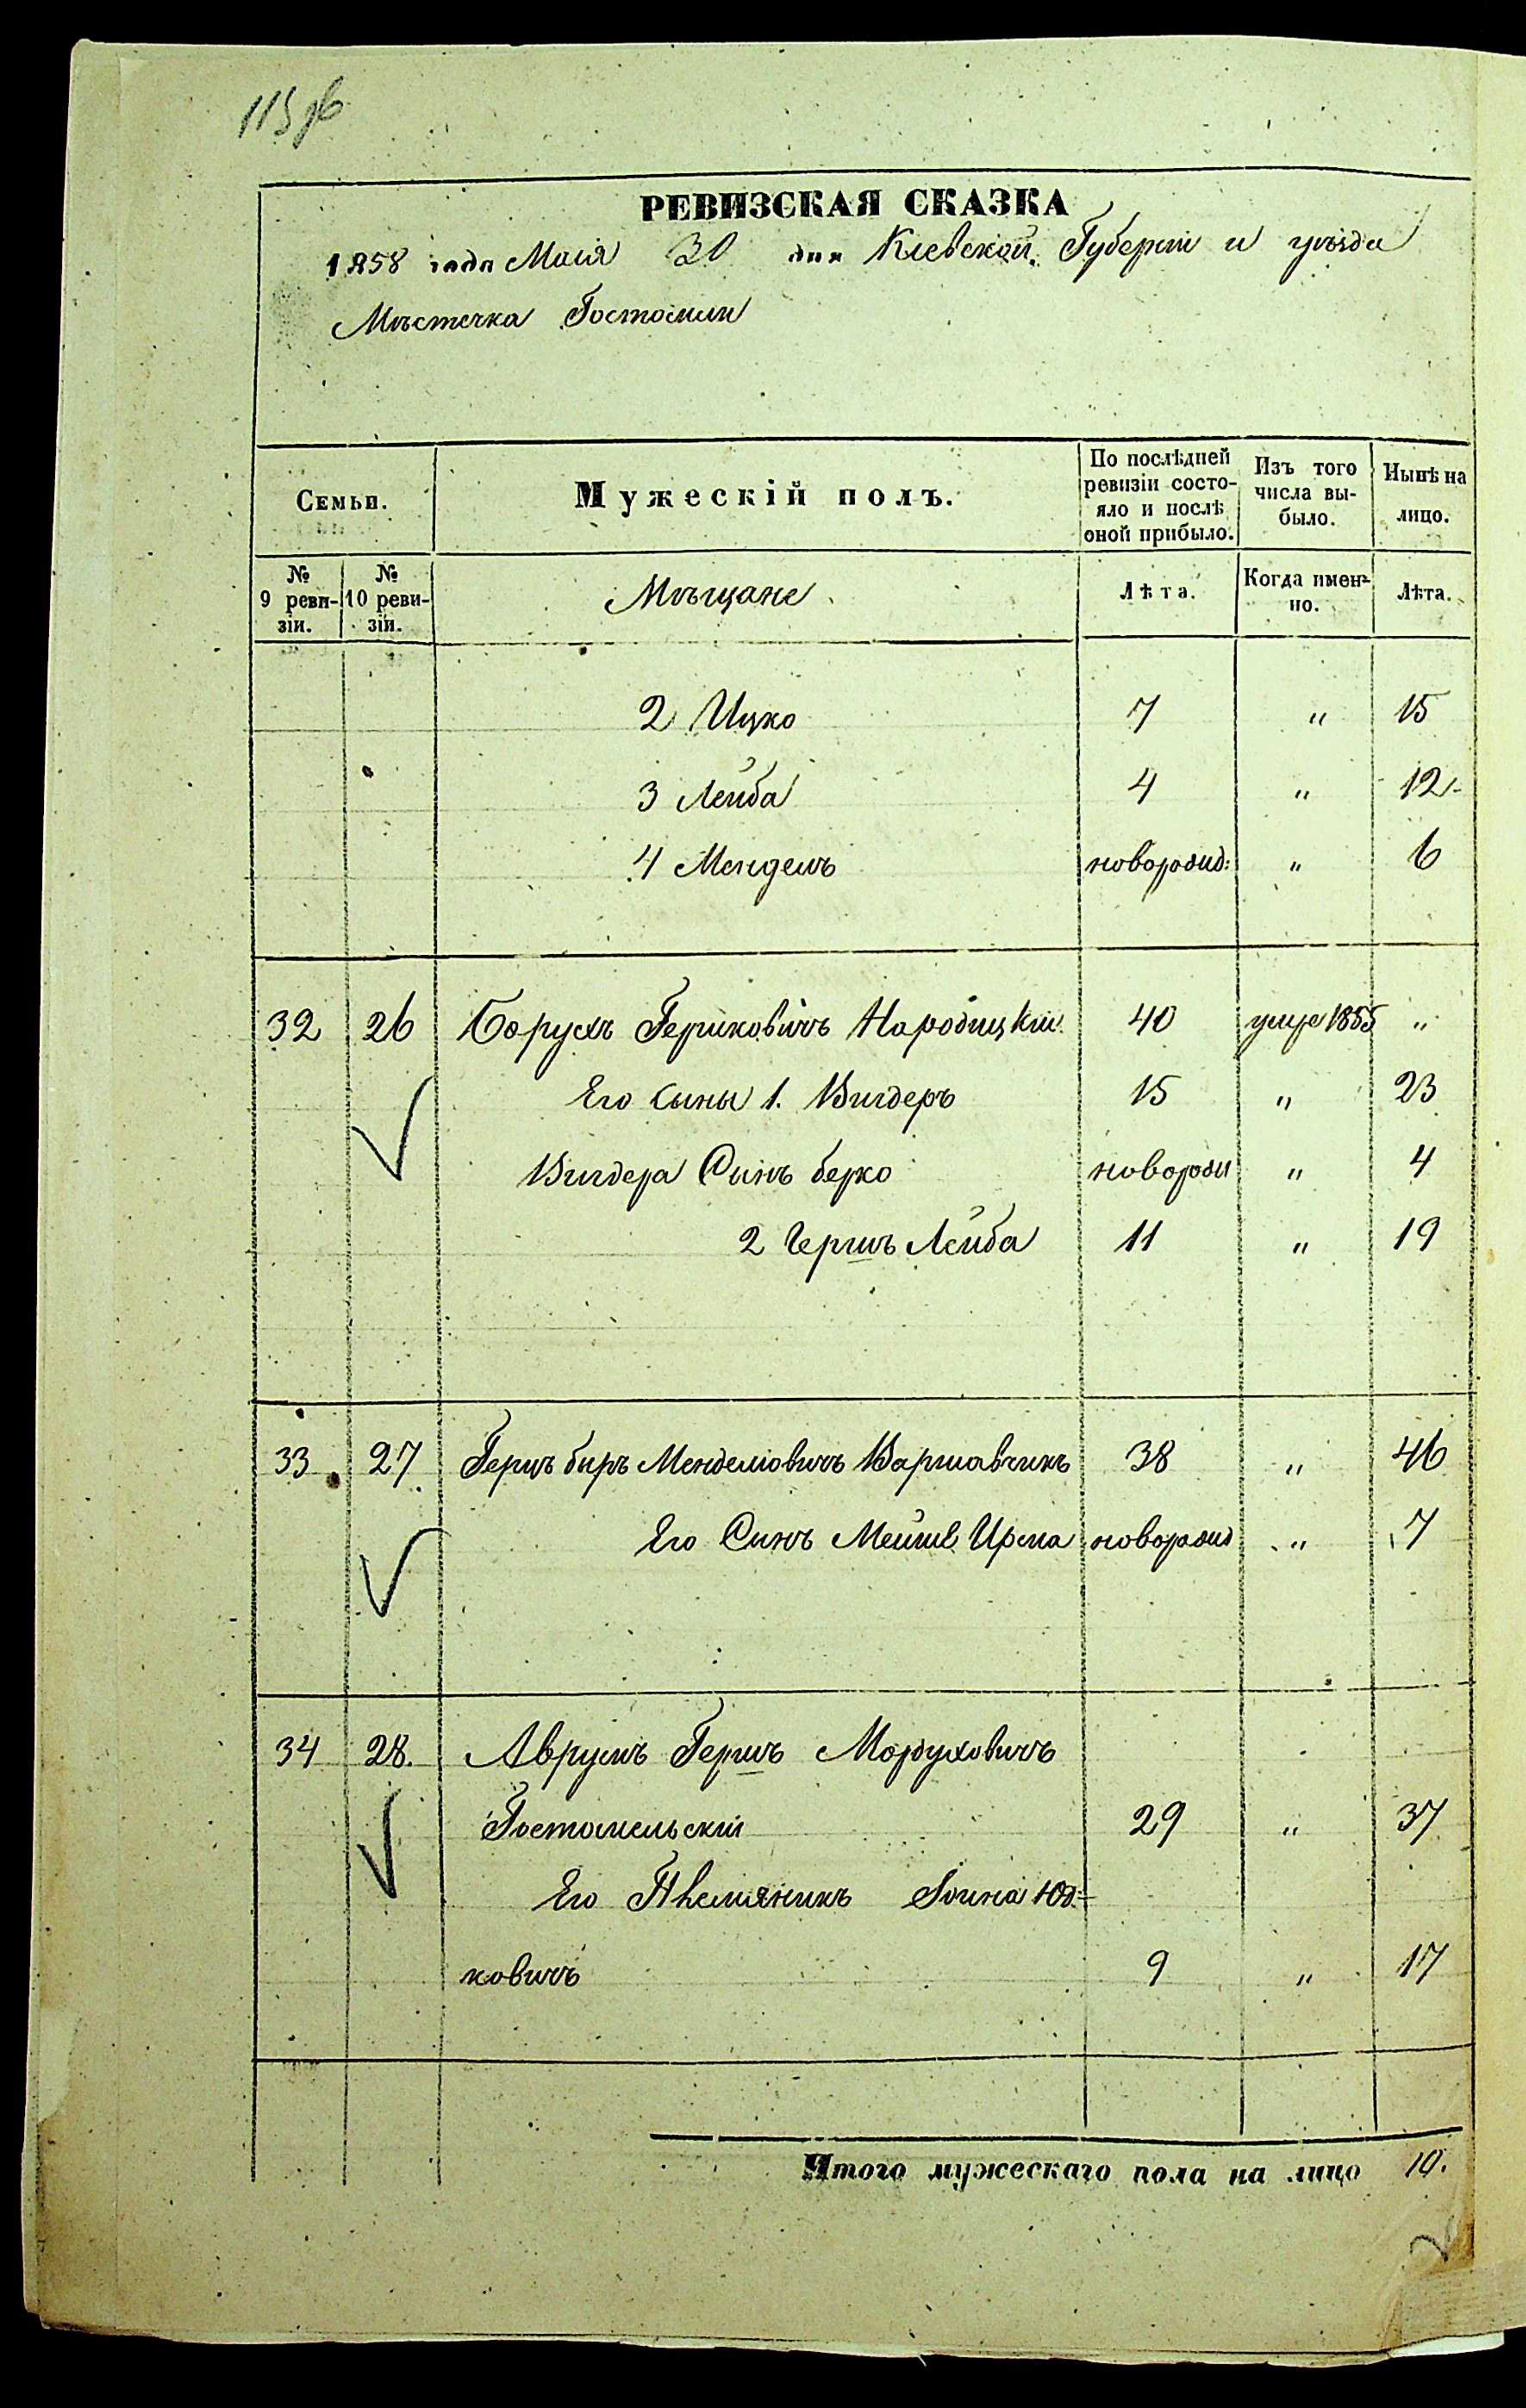 115 об
РЕВИЗСКАЯ СКАЗКА
1858 года Маія 30 дня Кіевской Губерніи и уѣзда
Мѣстечка Гостомля
Семьи.
Мужескій полъ.
По послѣдней ревизіи состо-яло и послѣ оной прибыло.
Изъ того числа вы-было.
Нынѣ на лицо.
№ 9 реви-зіи.
№ 10 реви-зіи.
Мѣщане
Лѣта.
Когда имен-но.
Лѣта.
2 Ицко 7 " 15
3 Лейба 4 " 12
4 Мендель новорожд: " 6
32 26 Борухъ Гершковичъ Народицкій 40 умре 1855 "
Его Сыны 1. Вигдеръ 15 " 23
Вигдера Сынъ берко новорож " 4
2 Гершъ Лейба 11 " 19
33 27 Герцъ биръ Менделіовичъ Варшавчикъ 38 " 46
Его Сынъ Мейше Ирма новорожд " 7
34 28. Аврумъ Гершъ Мордуховичъ
Гостомельскій 29 " 37
Его Племяникъ Іоина Юд-
ковичъ 9 " 17
Итого мужескаго пола на лицо 10.